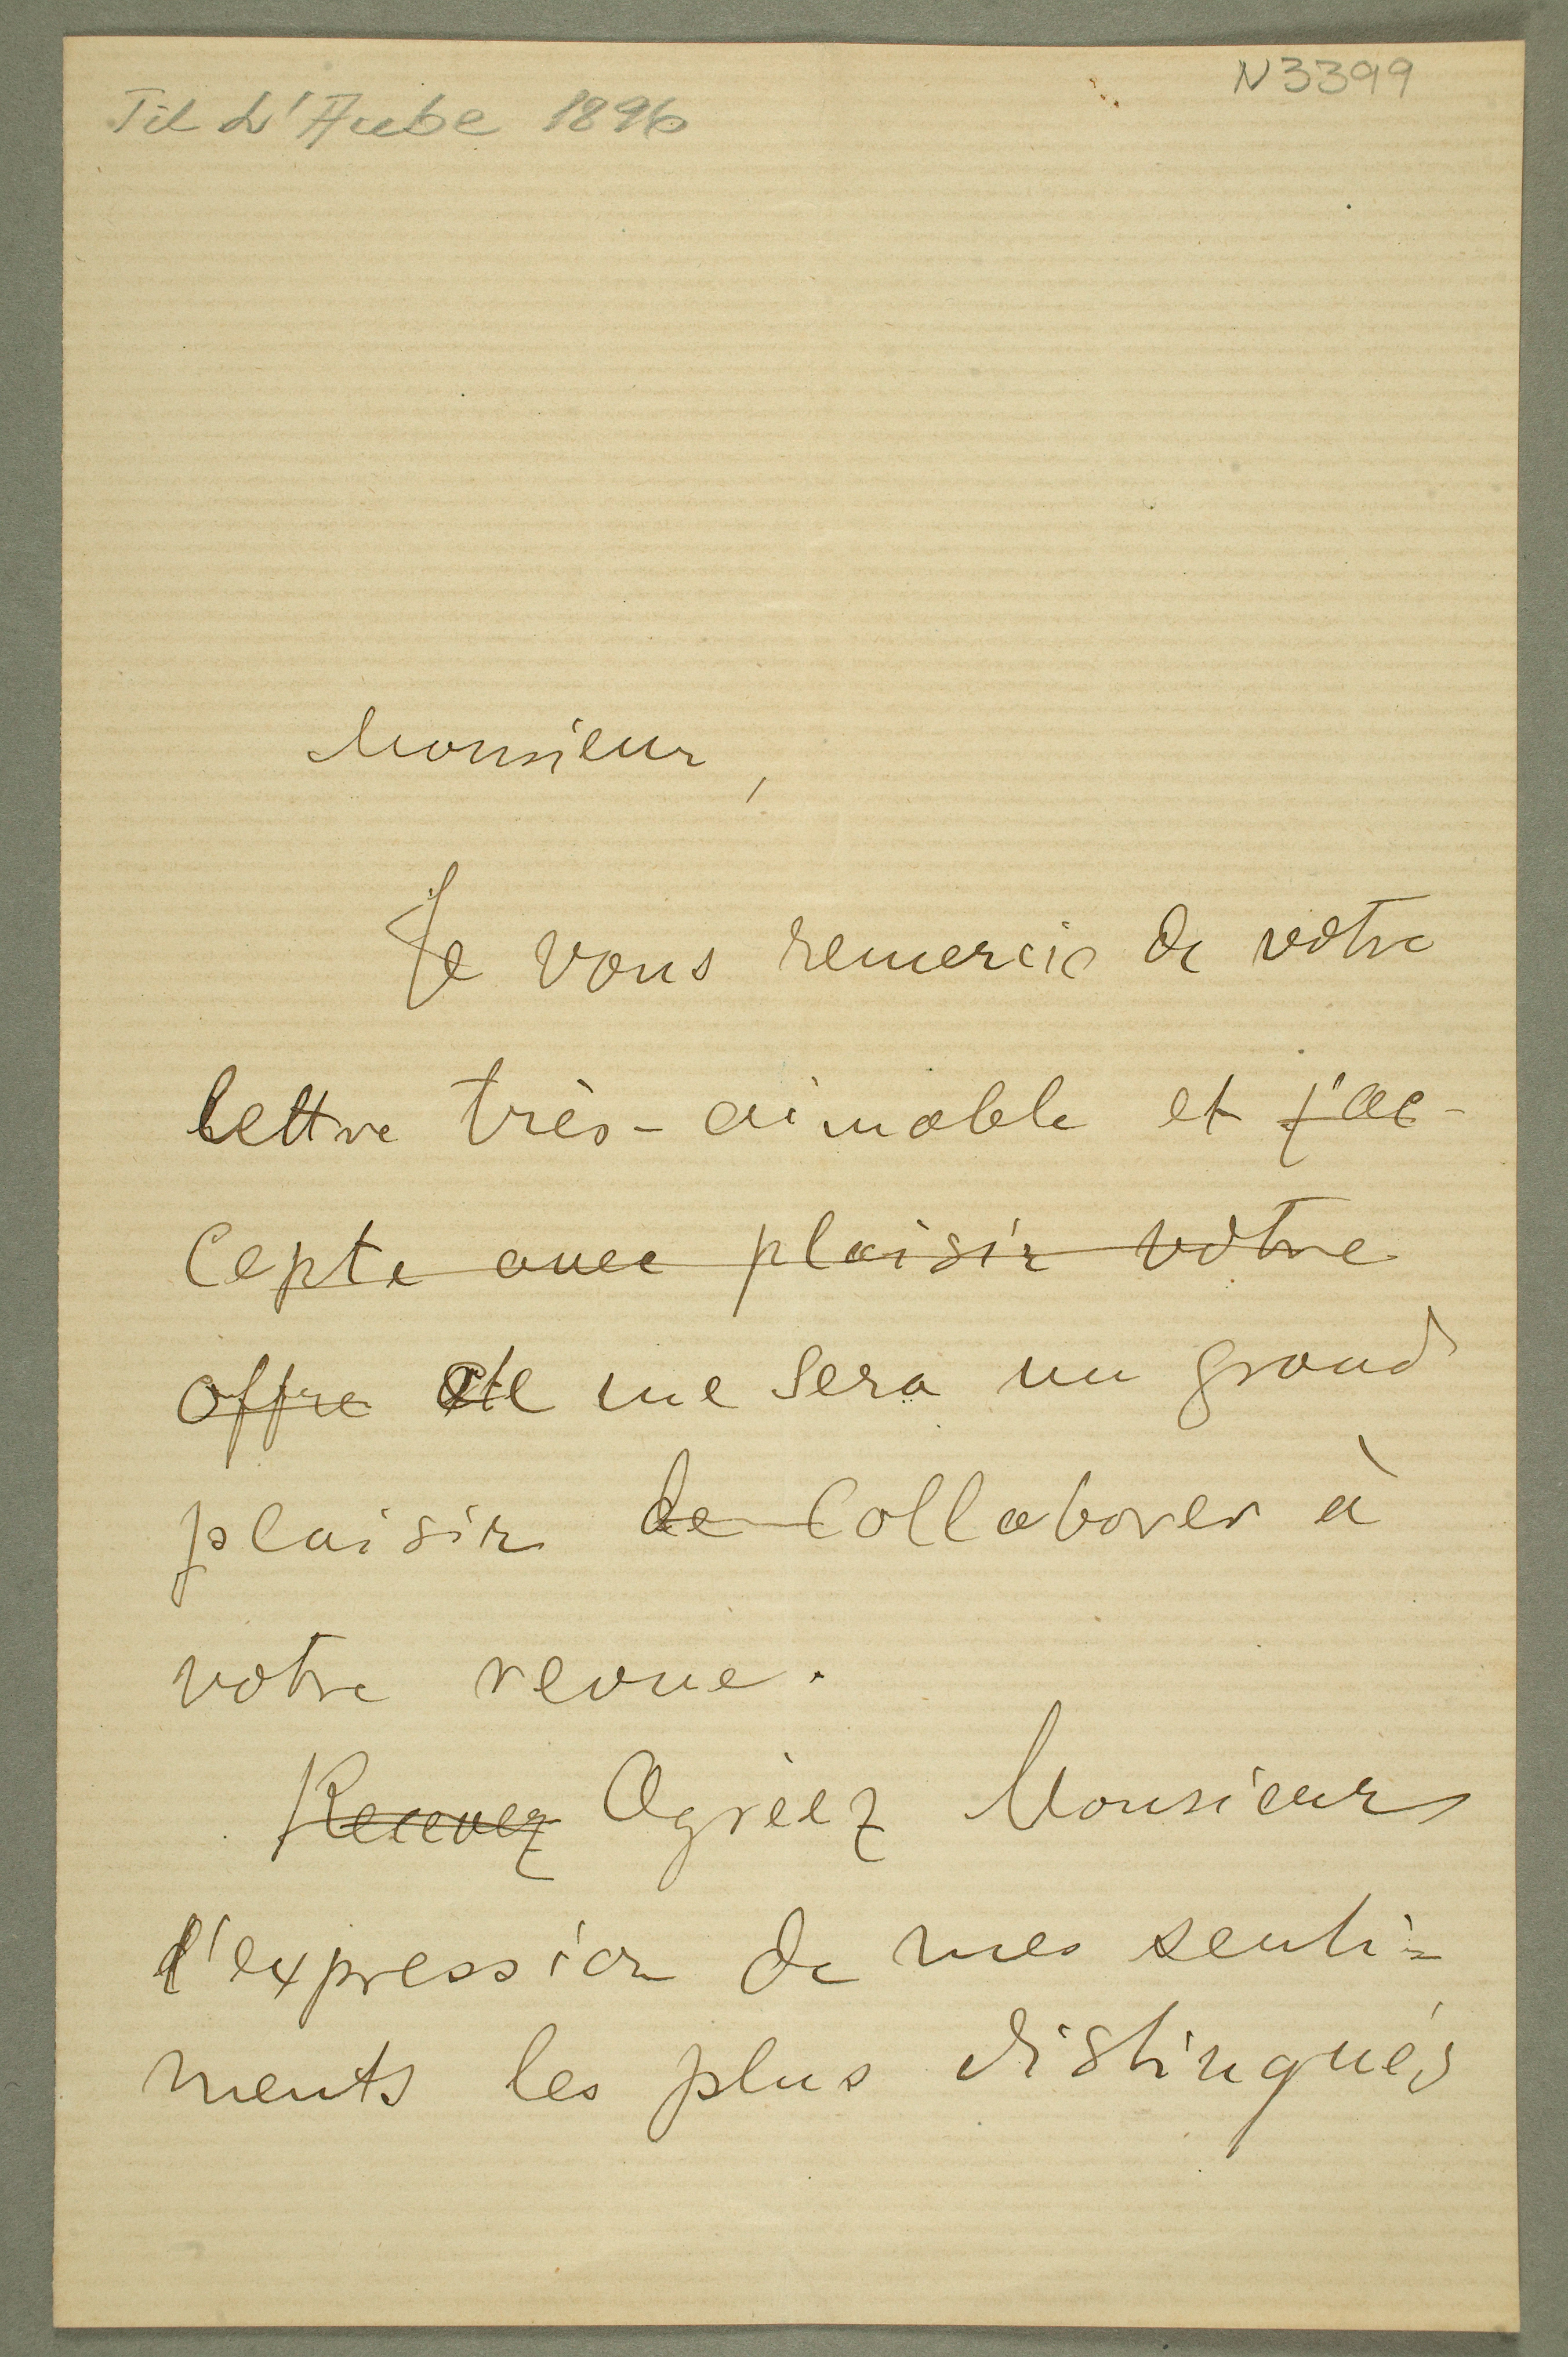 Til L'Aube 1896
N 3399
Monsieur,
Je vous remercie de votre
lettre très-aimable et j'ac-
cepte avec plaisir votre
offre me sera un grand
plaisir de collaborer à
votre revue.
Recevez Agréez Monsieur
l'expression de mes senti=
ments les plus distingués